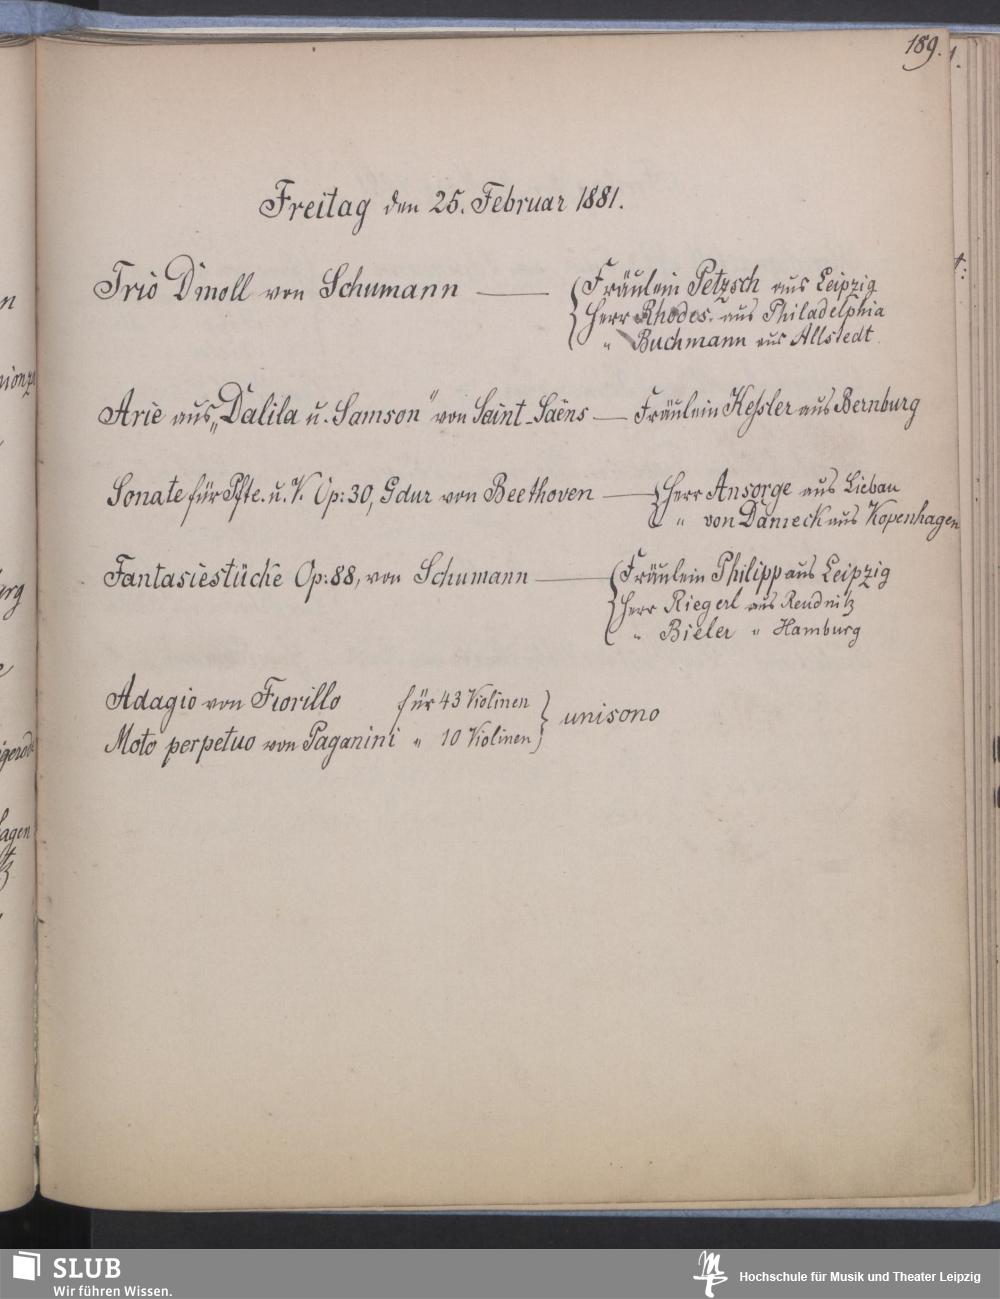 189.
Freitag den 25. Februar 1881.
Trio Dmoll von Schumann — Fräulein Petzsch aus Leipzig
Herr Rhodes. aus Philadelphia
" Buchmann aus Allstedt.
Arie aus „Dalila u. Samson" von Saint-Saëns — Fräulein Keßler aus Bernburg
Sonate für Pfte. u. V. Op: 30, Gdur von Beethoven — Herr Ansorge aus Liebau
" von Dameck aus Kopenhagen
Fantasiestücke Op: 88, von Schumann — Fräulein Philipp aus Leipzig
Herr Riegerl aus Reudnitz
" Bieler " Hamburg
Adagio von Fiorillo für 43 Violinen
Moto perpetuo von Paganini " 10 Violinen } unisono
SLUB
Wir führen Wissen.
Hochschule für Musik und Theater Leipzig